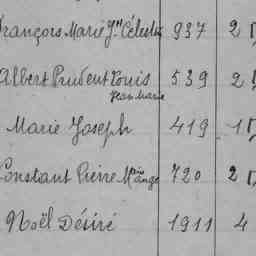 François Marie Jn Célestin 937 2
Albert Prudent Louis 539 2
Jean Marie
Marie Joseph 419 1
Constant Pierre Mie ange 720 2
Noël Désiré 1911 4